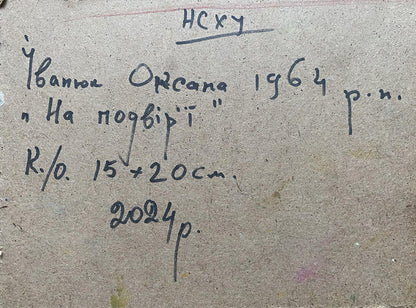 НСХУ
Іванюк Оксана 1964 р.н.
"На подвір'ї"
К./о. 15+20см.
2024р.